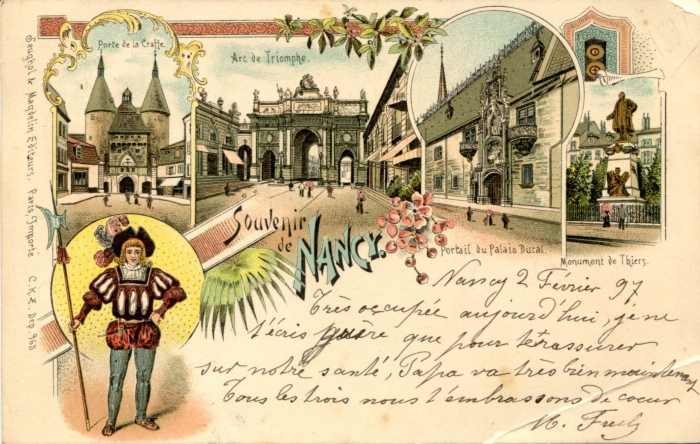 Porte de la Craffe.
Arc de Triomphe.
Souvenir
de
NANCY.
Portail du Palais Ducal.
Monument de Thiers.
Paris, Importe
C.K.Z. Dep. 968
Nancy 2 Février 97
Très occupée aujourd'hui, je ne
t'écris guère que pour te rassurer
sur notre santé, Papa va très bien maintenant
Tous les trois nous t'embrassons de coeur
M.